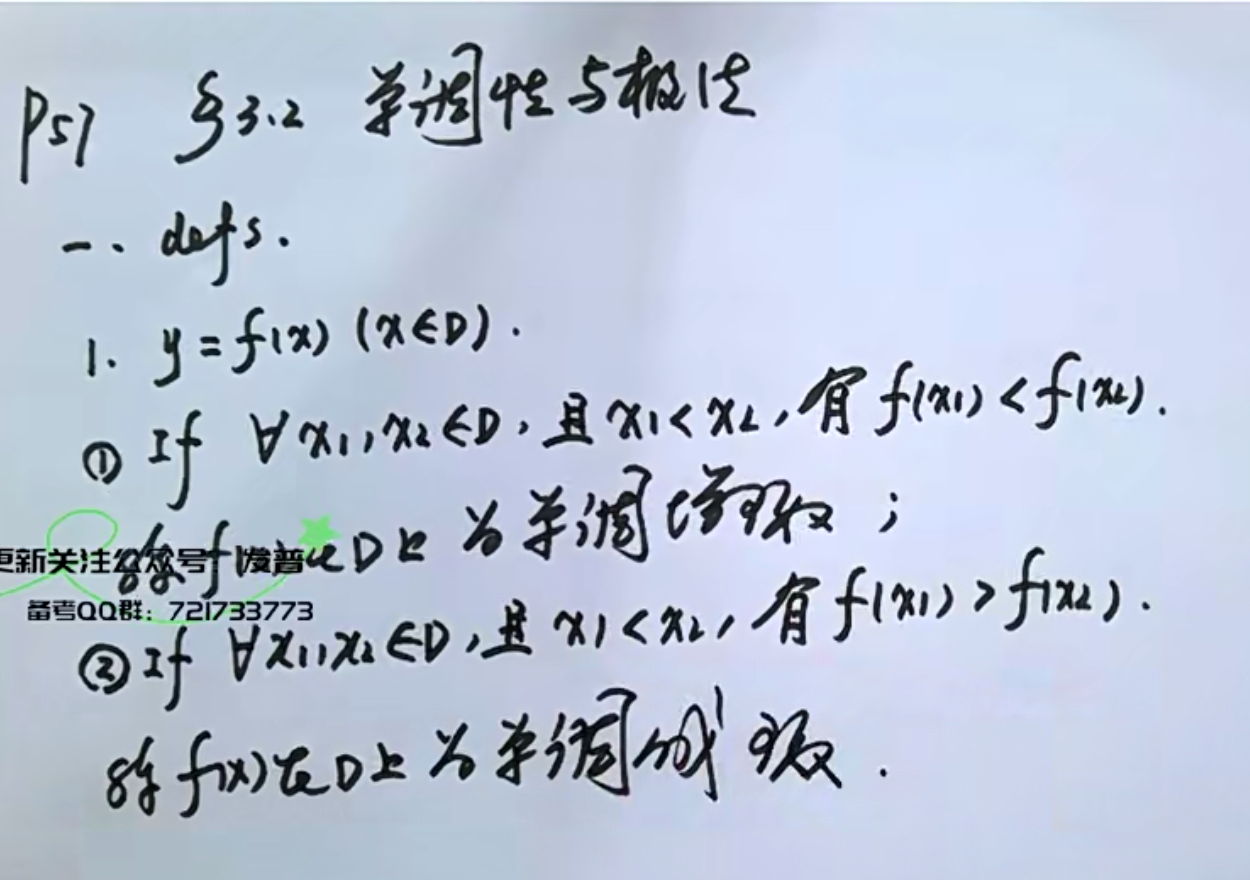 P57 §3.2 单调性与极值
一. defs.
1. y = f(x) (x∈D).
① If ∀x₁,x₂∈D, 且 x₁<x₂, 有 f(x₁)<f(x₂).
称 f(x)在D上为单调增函数;
更新关注公众号:顶尖发普
备考QQ群:721733773
② If ∀x₁,x₂∈D, 且 x₁<x₂, 有 f(x₁)>f(x₂).
称 f(x)在D上为单调减函数.